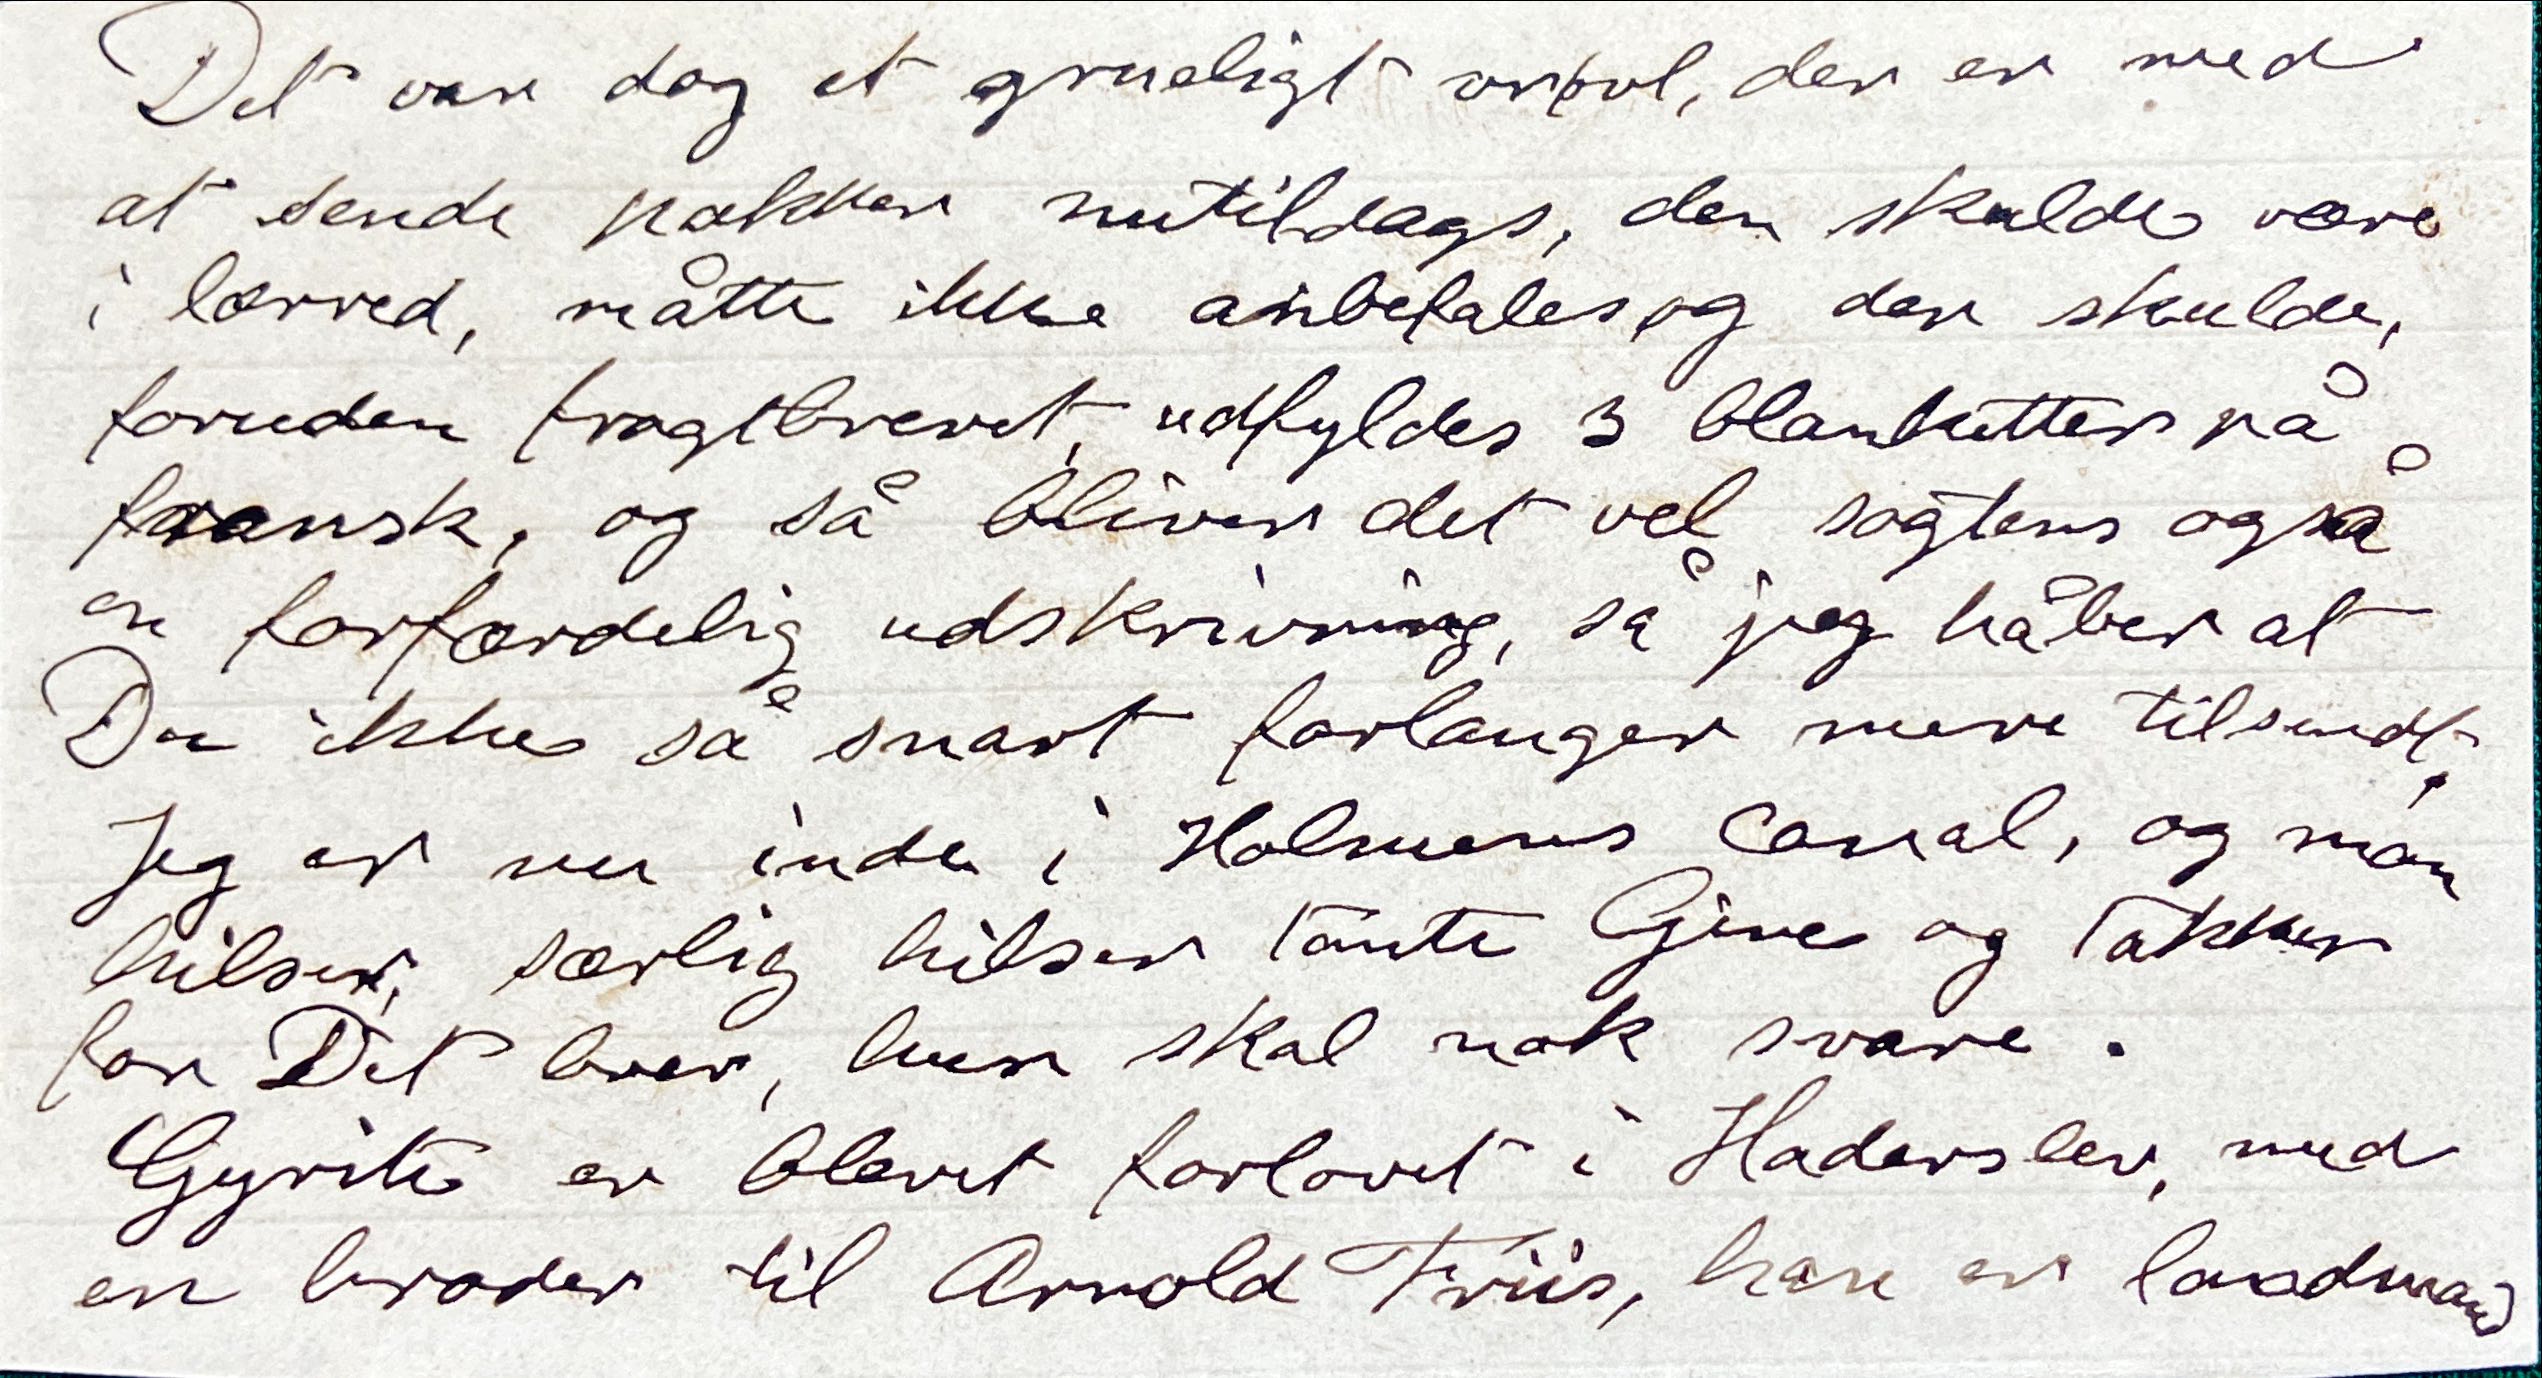 Det var dog et grueligt vrøvl, der er med
at sende pakker nutildags, den skulde være
i lærred, måtte ikke anbefales, og der skulde,
foruden fragtbrevet, udfyldes 3 blanketter på
fransk, og så bliver det vel sagtens også
en forfærdelig udskrivning, så jeg håber at
Du ikke så snart forlanger mere tilsendt.
Jeg er nu inde i Holmens Canal, og man
hilser, særlig hilser tante Gine og takker
for Dit brev, hun skal nok svare.
Gyrite er blevet forlovet i Haderslev, med
en broder til Arnold Friis, han er landmand